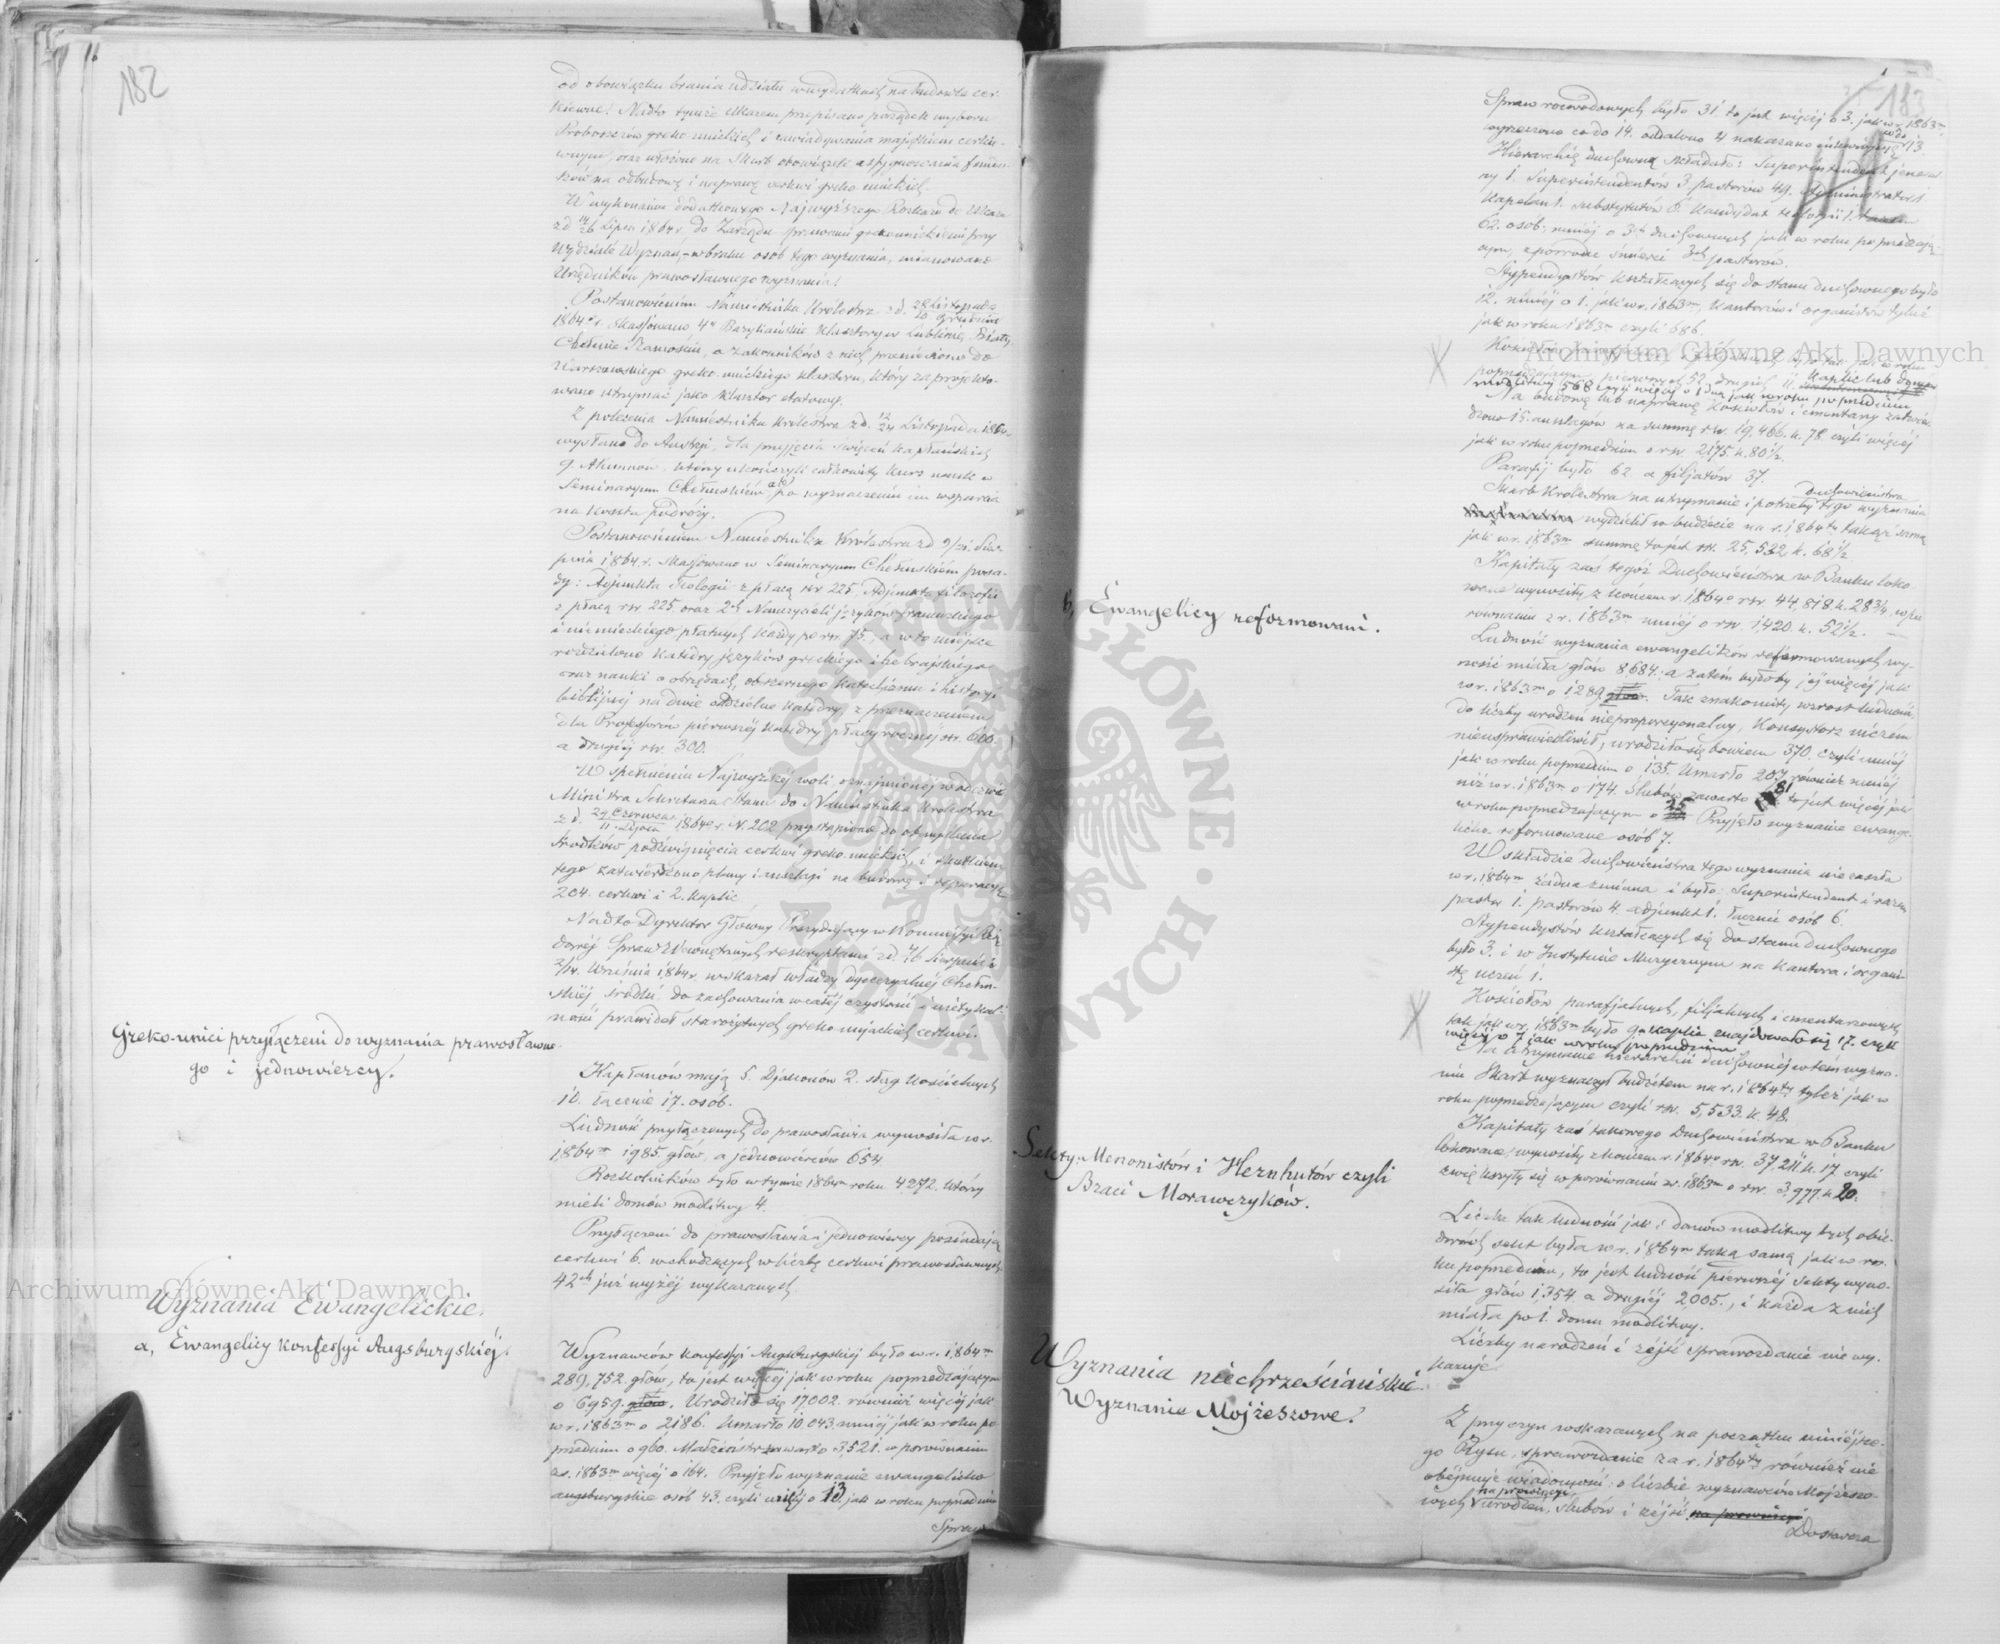 182
od obowiązku brania udziału w wydatkach na budowle cer-
kiewne. Nadto tymże Ukazem przepisano porządek wyboru
Proboszczów greko-unickich i zawiadywania majątkiem cerkie-
wnym, oraz włożono na Skarb obowiązek assygnowania fundu-
szów na odbudowę i naprawę cerkwi greko-unickich.
W wykonaniu dodatkowego Najwyższego Rozkazu do Ukazu
z d. 14/26 Lipca 1864 r. do Zarządu sprawami grekounickiemi przy
Wydziale Wyznań, w braku osób tego wyznania, mianowano
Urzędników prawosławnego wyznania.
Postanowieniem Namiestnika Królestwa z d. 28 Listopada / 10 Grudnia
1864 r. skassowano 4 Bazyliańskie klasztory w Lublinie, Białej,
Chełmie i Zamościu, a zakonników z nich przeniesiono do
Warszawskiego greko-unickiego klasztoru, który zaprojekto-
wano utrzymać jako klasztor etatowy.
Z polecenia Namiestnika Królestwa z d. 12/24 Listopada 1864
wysłano do Austryi, dla przyjęcia święceń kapłańskich
9. Alumnów, którzy ukończyli całkowity kurs nauk w
Seminaryum Chełmskiém, po wyznaczeniu im wsparcia
na koszta podróży.
Postanowieniem Namiestnika Królestwa z d. 9/21 Sier-
pnia 1864 r. skassowano w Seminaryum Chełmskiém posa-
dy: Adjunkta Teologii z płacą rsr. 225, Adjunkta filozofii
z płacą rsr. 225. oraz 2ch Nauczycieli języków francuzkiego
i niemieckiego płatnych każdy po rsr. 75., a w to miejsce
rozdzielono katedry języków greckiego i hebrajskiego
oraz nauki o obrzędach, obszernego katechizmu i historyi
biblijnej na dwie oddzielne katedry, z przeznaczeniem
dla Professorów pierwszéj katedry płacy rocznej rsr. 600.
a drugiéj rsr. 300.
W spełnieniu Najwyższej woli oznajmionéj w odezwie
Ministra Sekretarza Stanu do Namiestnika Królestwa
z d. 29 Czerwca / 11 Lipca 1864 r. N. 202 przystąpiono do obmyślenia
środków podźwignięcia cerkwi greko-unickich, i skutkiem
tego zatwierdzono plany i anszlagi na budowę i reparacyę
204. cerkwi i 2. kaplic.
Nadto Dyrektor Główny Prezydujący w Kommissyi Rzą-
dowéj Spraw Wewnętrznych reskryptami z d. 4/16 Sierpnia i
2/14 Września 1864 r. wskazał władzy dyecezyalnéj Chełm-
skiéj, środki do zachowania w całéj czystości i nietykal-
ności prawideł starożytnych greko-unijackich cerkwi.
Greko-unici przyłączeni do wyznania prawosławne-
go i jednowiercy.
Kapłanów mają 5. Djakonów 2. sług kościelnych
10. łącznie 17. osób.
Ludność przyłączonych do prawosławia wynosiła w r.
1864m 1985. głów, a jednowierców 654
Rozkolników było w tymże 1864m roku 4272. którzy
mieli domów modlitwy 4.
Przyłączeni do prawosławia i jednowiercy posiadają
cerkwi 6. wchodzących w liczbę cerkwi prawosławnych
42ch już wyżéj wykazanych.
Wyznania Ewangelickie.
a, Ewangelicy konfessyi Augsburgskiéj.
Wyznawców konfessyi Augsburgskiej było w r. 1864m
289,752. głów, to jest więcej jak w roku poprzedzającym
o 6959. głów. Urodziło się 17002. również więcéj jak
w r. 1863m o 2186. Umarło 10,043. mniéj jak w roku po-
przednim o 960. Małżeństw zawarto 3,521. w porównaniu
z r. 1863m więcéj o 164. Przyjęło wyznanie ewangelicko
augsburgskie osób 43. czyli więcéj o 13. jak w roku poprzednim
Spraw
183
Spraw rozwodowych było 31. to jest więcéj o 3. jak w r. 1863m
wyrzeczono co do 14. oddalono 4 nakazano 13.
Hierarchię duchowną składało: Superintendent jeneral-
ny 1. Superintendentów 3. pastorów 49. Administrator 1
Kapelan 1. substytutów 6. kandydat teologii 1.
62. osób; mniéj o 3ch duchownych jak w roku poprzedzają-
cym, z powodu śmierci 3ch pastorów.
Stypendystów kształcących się do stanu duchownego było
12. mniéj o 1. jak w r. 1863m, kantorów i organistów tyluż
jak w roku 1863m czyli 686.
poprzedzającym, pierwszych 52. drugich 11. Kaplic lub domów
modlitwy 568 czyli więcéj o 1 jak w roku poprzednim
Na budowę lub naprawę kościołów i cmentarzy zatwier-
dzono 15. anszlagów na summę rsr. 19,466. k. 78. czyli więcéj
jak w roku poprzednim o rsr. 2175 k. 80½.
Parafij było 62. a filjałów 37.
Skarb Królestwa na utrzymanie i potrzeby duchowieństwa tego wyznania
wydzielił w budżecie na r. 1864ty takąż samą
jak w r. 1863m summę to jest rsr. 25,532 k. 68½
Kapitały zaś tegoż Duchowieństwa w Banku loko-
wane wynosiły z końcem r. 1864o rsr. 44,818 k. 28¾. w po-
równaniu z r. 1863m mniéj o rsr. 1,420. k. 52½.
b, Ewangelicy reformowani.
Ludność wyznania ewangelików reformowanych wy-
nosić miała głów 8684. a zatém byłoby jéj więcéj jak
w r. 1863m o 1289. głów. Tak znakomity wzrost ludności,
do liczby urodzeń nieproporcyonalny, Konsystorz niczem
nieusprawiedliwił, urodziło się bowiem 370. czyli mniéj
jak w roku poprzednim o 135. Umarło 207. również mniéj
niż w r. 1863m o 174. Ślubów zawarto 81 to jest więcéj jak
w roku poprzedzającym o 25 Przyjęło wyznanie ewange-
licko-reformowane osób 7.
W składzie Duchowieństwa tego wyznania nie zaszła
w r. 1864m żadna zmiana i było: Superintendent i razem
pastor 1. pastorów 4. adjunkt 1. łącznie osób 6.
Stypendystów kształcących się do stanu duchownego
było 3. i w Instytucie Muzycznym na kantora i organi-
stę uczeń 1.
Kościołów parafjalnych, filjalnych i cmentarzowych
tak jak w r. 1863m było 9. Kaplic znajdowało się 17. czyli
więcéj o 7 jak w roku poprzednim
Na utrzymanie hierarchii duchownéj w tém wyzna-
niu Skarb wyznaczył budżetem na r. 1864ty tyleż jak w
roku poprzedzającym czyli rsr. 5,533. k. 48.
Kapitały zaś takowego Duchowieństwa w Banku
lokowane wynosiły z końcem r. 1864o rsr. 37,211 k. 17 czyli
zwiększyły się w porównaniu z r. 1863m o rsr. 3,977. k. 20.
Sekty: Menonistów i Hernhutów czyli
Braci Morawczyków.
Liczba tak ludności jak i domów modlitwy tych obu-
dwóch sekt była w r. 1864m taką samą jak w ro-
ku poprzednim, to jest ludność pierwszéj sekty wyno-
siła głów 1,354. a drugiéj 2,005., i każda z nich
miała po 1. domu modlitwy.
Liczby narodzeń i zejść sprawozdanie nie wy-
kazuje.
Wyznania niechrześciańskie.
Wyznanie Mojżeszowe.
Z przyczyn wskazanych na początku niniejsze-
go Rysu, sprawozdanie za r. 1864ty również nie
obejmuje wiadomości o liczbie wyznawców Mojżeszo-
wych na prowincyi urodzeń, ślubów i zejść na prowincyi
Dostarcza
Archiwum Główne Akt Dawnych
Archiwum Główne Akt Dawnych
ARCHIWUM GŁÓWNE AKT DAWNYCH